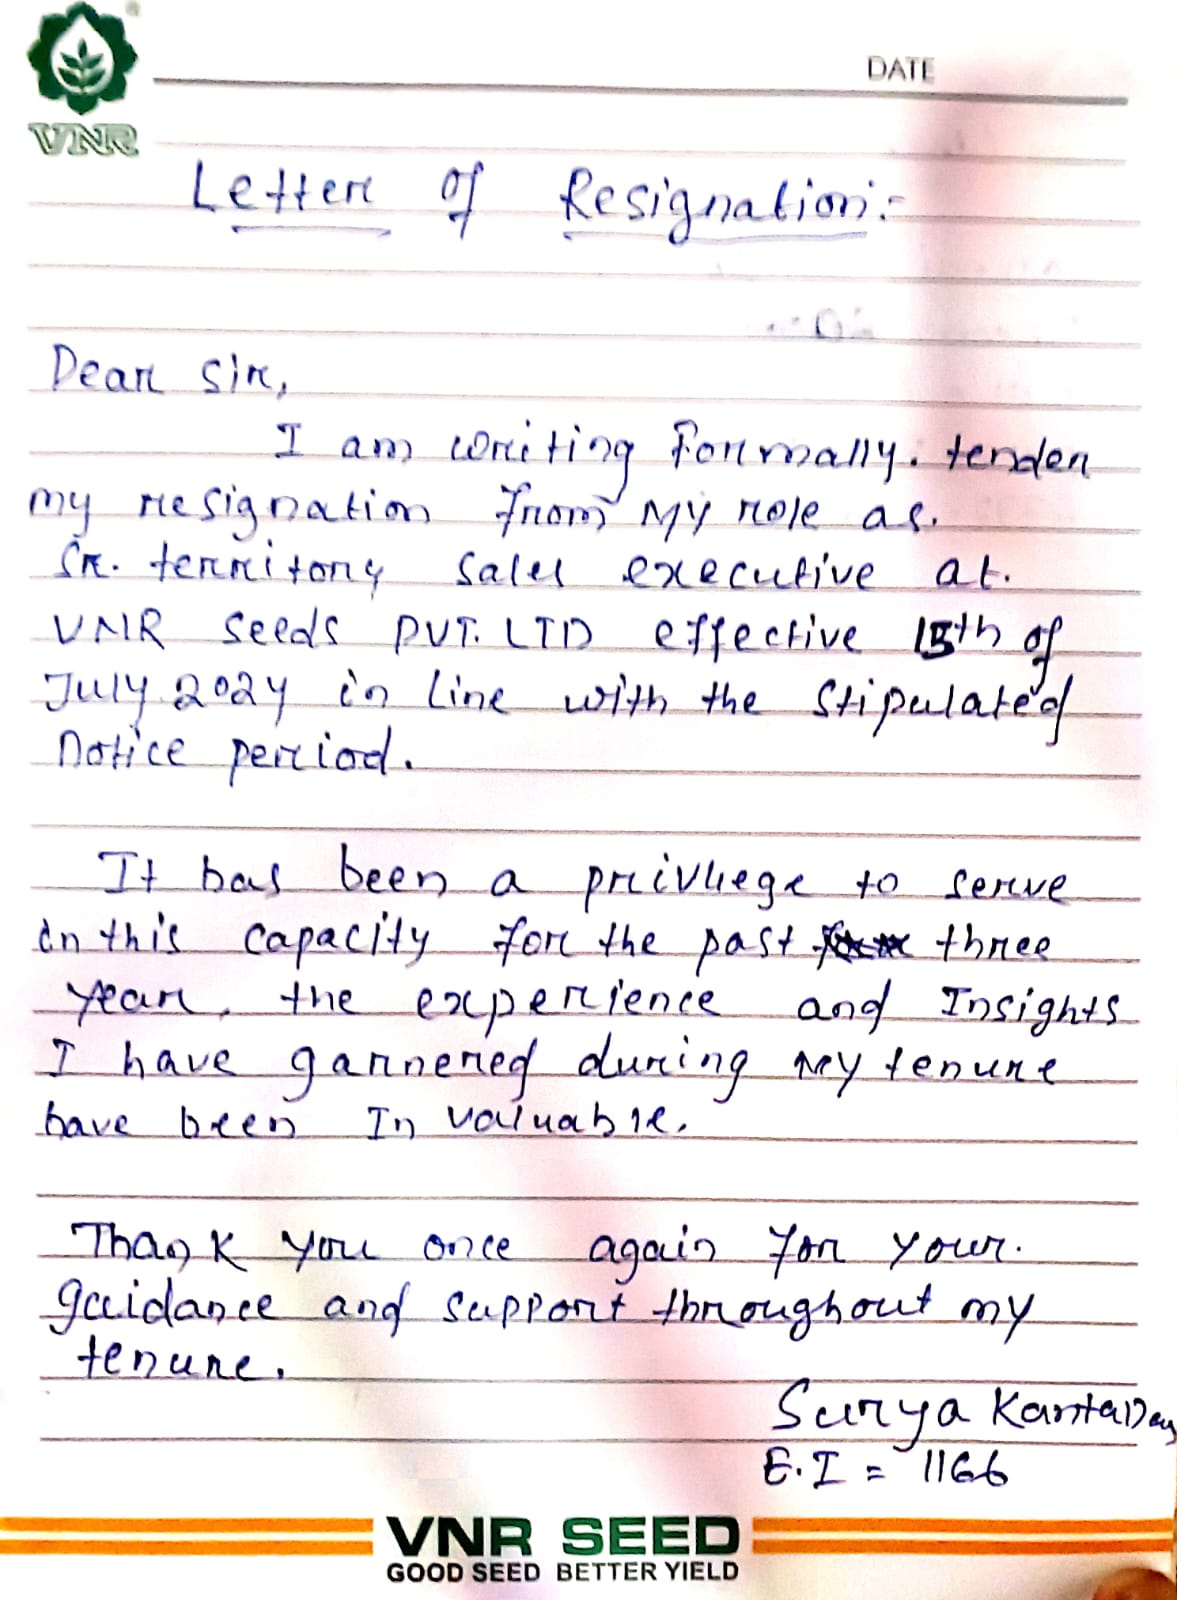 VNR
DATE
Letter of Resignation:-
Dear Sir,
I am writing formally. tender
my resignation from my role as.
Sr. territory sales executive at.
VNR seeds PVT. LTD effective 15th of
July 2024 in line with the stipulated
notice period.
It has been a privliege to serve
in this capacity for the past three
year, the experience and Insights
I have garnered during my tenure
have been In valuable.
Thank you once again for your.
guidance and support throughout my
tenure.
Surya Kanta Das
E.I = 1166
VNR SEED
GOOD SEED BETTER YIELD